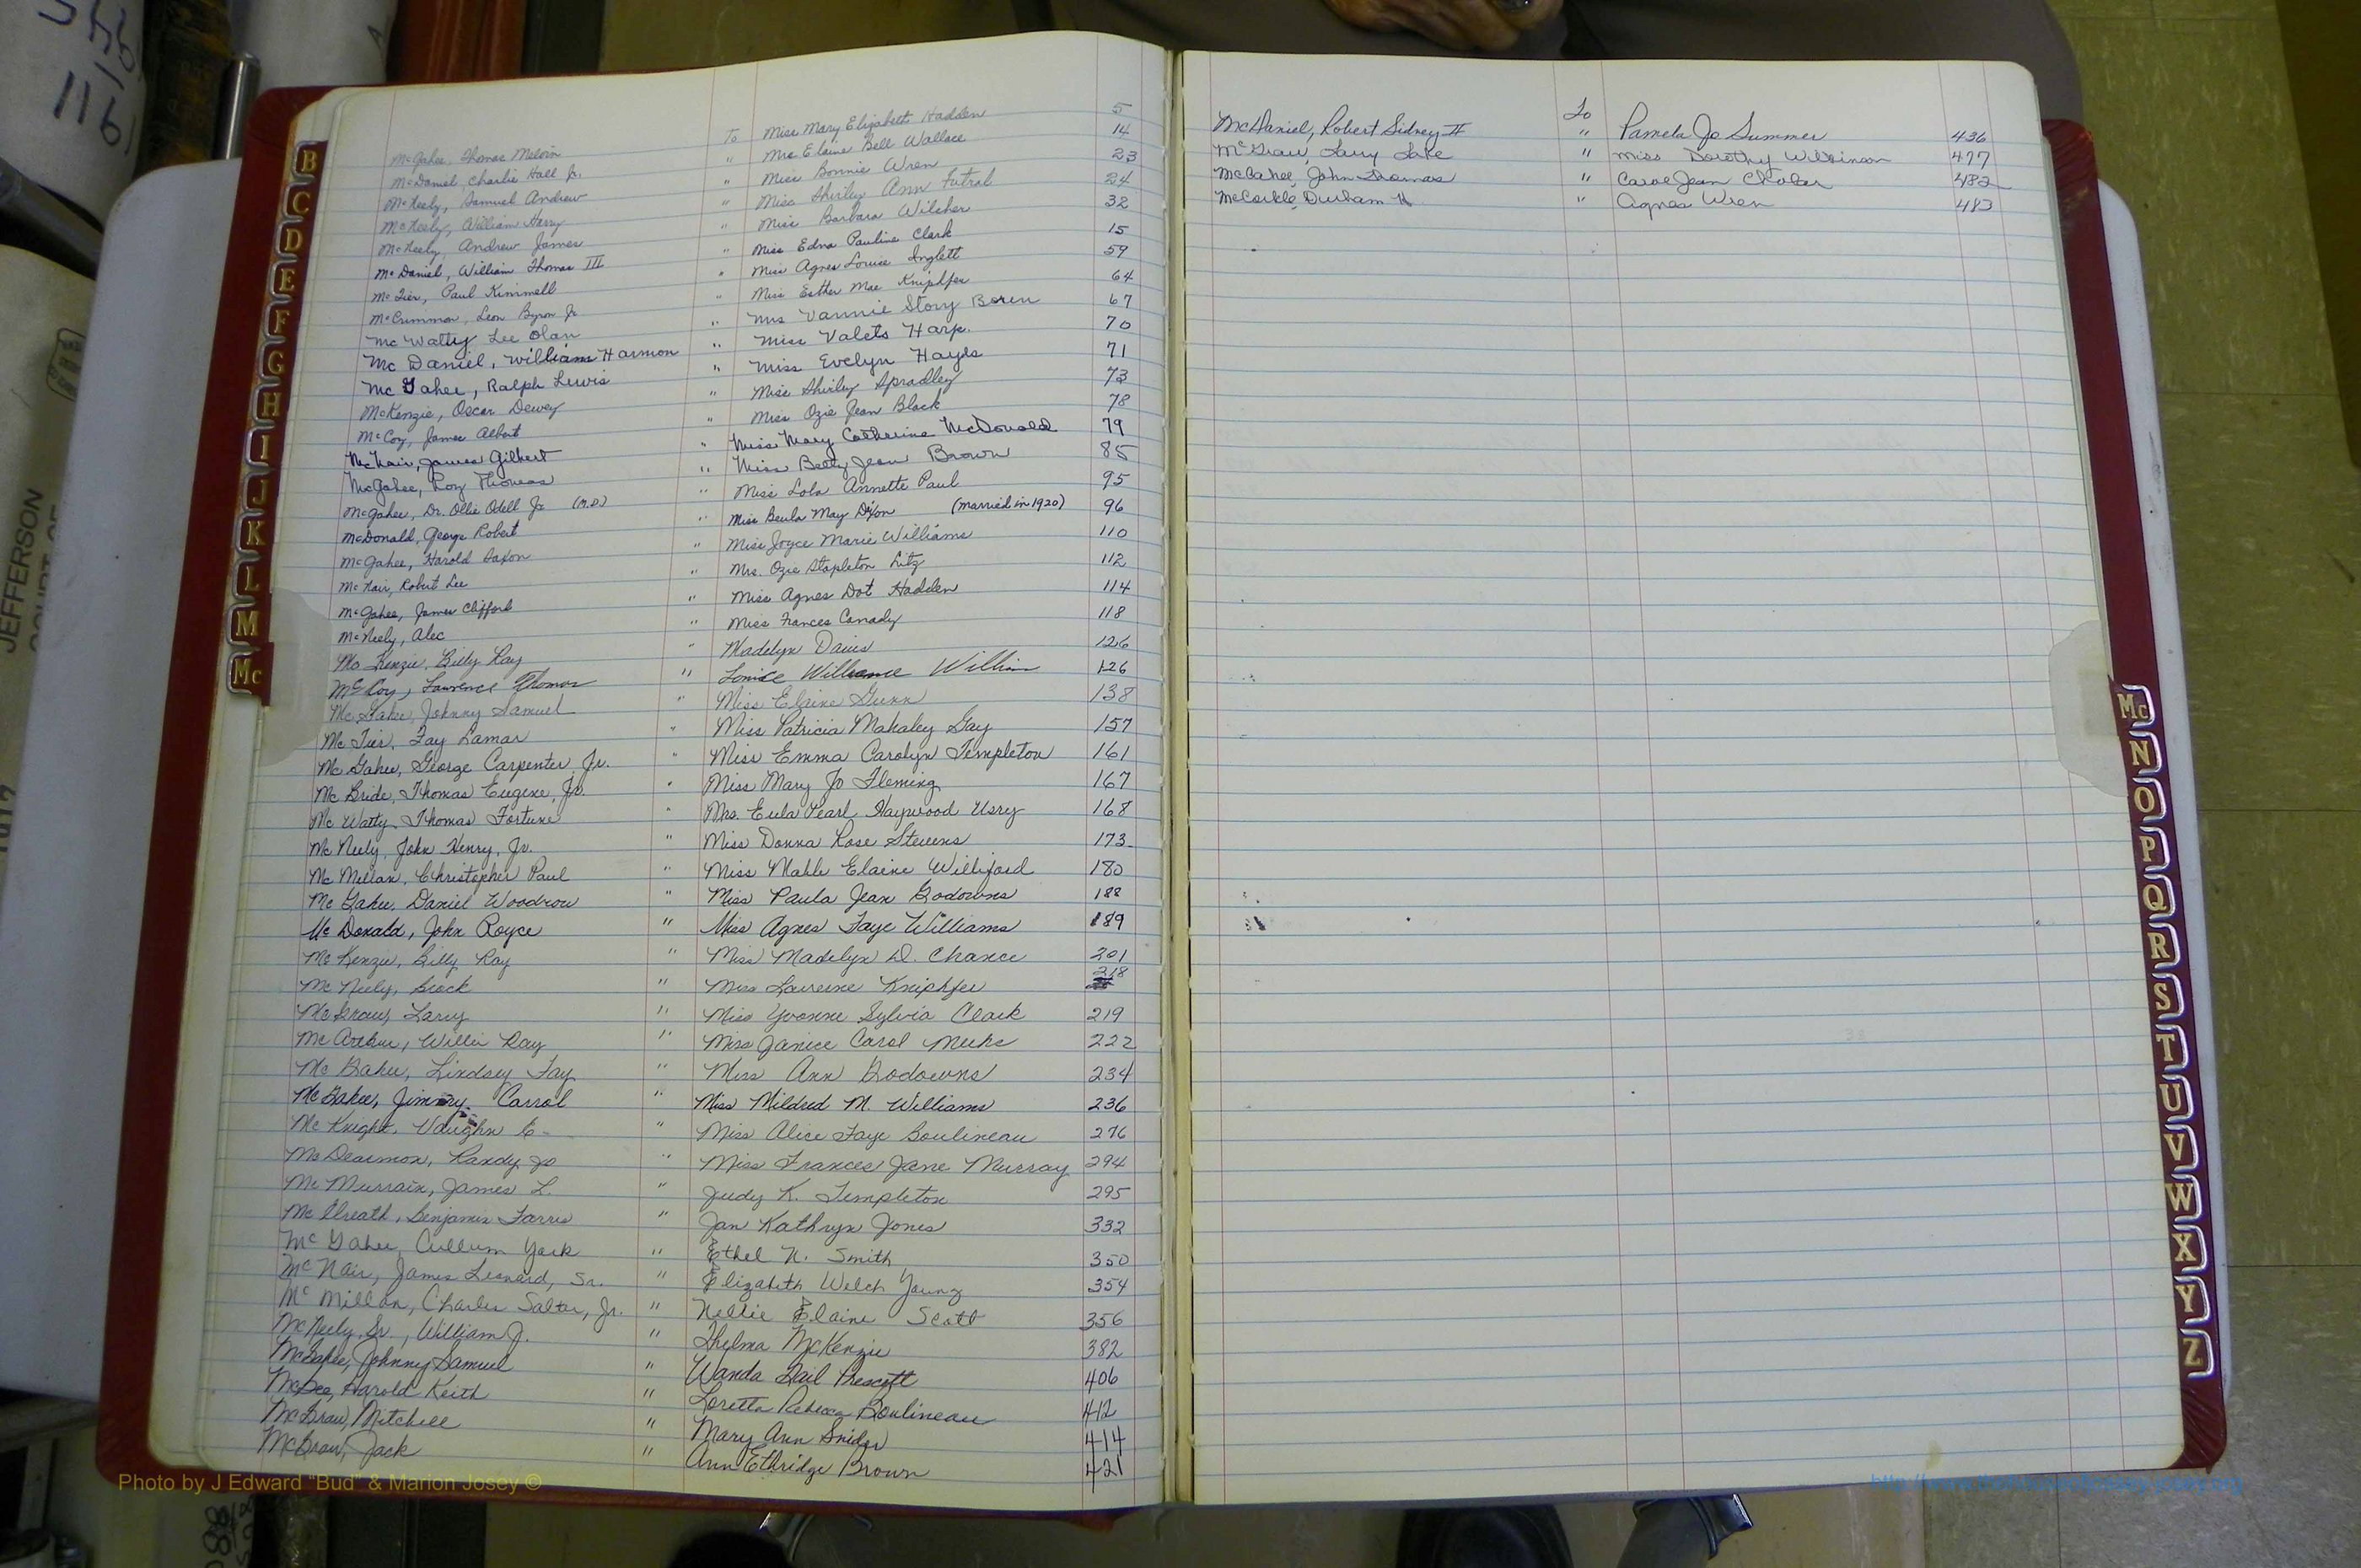 McGahee, Thomas Melvin To Miss Mary Elizabeth Hadden 5
McDaniel, Charlie Hall Jr. " Mrs Elaine Bell Wallace 14
McNeely, Samuel Andrew " Miss Bonnie Wren 23
McNeely, William Harry " Miss Shirley Ann Futral 24
McNeely, Andrew James " Miss Barbara Wilcher 32
McDaniel, William Thomas III " Miss Edna Pauline Clark 15
McTier, Paul Kimmell " Miss Agnes Louise Inglett 59
McCrimmon, Leon Byron Jr " Miss Esther Mae Kniphfer 64
Mc Watty Lee Olan " Mrs Vannie Story Boren 67
Mc Daniel, William Harmon " Miss Valets Harp. 70
Mc Gahee, Ralph Lewis " Miss Evelyn Hayds 71
McKenzie, Oscar Dewey " Miss Shirley Spradley 73
McCoy, James Albert " Miss Ozie Jean Black 78
McNair, James Gilbert " Miss Mary Catherine McDonald 79
McGahee, Roy Thomas " Miss Betty Jean Brown 85
McGahee, Dr. Ollie Odell Jr (M.D.) " Miss Lola Annette Paul 95
McDonald, George Robert " Miss Beula May Dixon (married in 1920) 96
McGahee, Harold Saxon " Miss Joyce Marie Williams 110
McNair, Robert Lee " Mrs. Ozie Stapleton Litz 112
McGahee, James Clifford " Miss Agnes Dot Hadden 114
McNeely, Alec " Miss Frances Canady 118
Mc Kenzie, Billy Ray " Madelyn Davis 126
McCoy, Lawrence Thomas " Williams 126
Mc Gahee, Johnny Samuel " Miss Elaine Gunn 138
Mc Tier, Fay Lamar " Miss Patricia Makaley Gay 157
Mc Gahee, George Carpenter, Jr. " Miss Emma Carolyn Templeton 161
Mc Bride, Thomas Eugene, Jr. " Miss Mary Jo Fleming 167
Mc Watty, Thomas Fortune " Mrs. Eula Pearl Haywood Usry 168
Mc Neely, John Henry, Jr. " Miss Donna Rose Stevens 173
Mc Millan, Christopher Paul " Miss Mable Elaine Williford 180
Mc Gahee, Daniel Woodrow " Miss Paula Jean Godowns 188
Mc Donald, John Royce " Miss Agnes Faye Williams 189
Mc Kenzie, Billy Ray " Miss Madelyn D. Chance 201
Mc Neely, Brock " Miss Laurene Kniphfer 218
McGraw, Larry " Miss Yvonne Sylvia Clark 219
Mc Arthur, Willie Ray " Miss Janice Carol Meeks 222
Mc Gahee, Lindsey Fay " Miss Ann Godowns 234
McGahee, Jimmy Carrol " Miss Mildred M. Williams 236
Mc Knight, Vaughn E- " Miss Alice Faye Boulineau 276
Mc Dearmon, Randy Jo " Miss Frances Jane Murray 294
Mc Murrain, James L. " Judy K. Templeton 295
Mc Elreath, Benjamin Farris " Jan Kathryn Jones 332
McGahee, Cullum York " Ethel N. Smith 350
McNair, James Leonard, Sr. " Elizabeth Welch Young 354
McMillan, Charles Salter, Jr. " Nellie Elaine Scott 356
McNeely, Sr., William J. " Thelma McKenzie 382
McGahee, Johnny Samuel " Wanda Gail Prescott 406
McGee, Harold Keith " Loretta Rebecca Boulineau 412
McGraw, Mitchell " Mary Ann Snider 414
McGraw, Jack " Ann Ethridge Brown 421
McDaniel, Robert Sidney II To Pamela Jo Summer 436
McGraw, Larry Lake " Miss Dorothy Wilkinson 477
McGahee, John Thomas " Carol Jean 482
McCorkle, Durham H. " Agnes Wren 483
B
C
D
E
F
G
H
I
J
K
L
M
Mc
Mc
N
O
P
Q
R
S
T
U
V
W
X
Y
Z
JEFFERSON
1161
Photo by J Edward "Bud" & Marion Josey ©